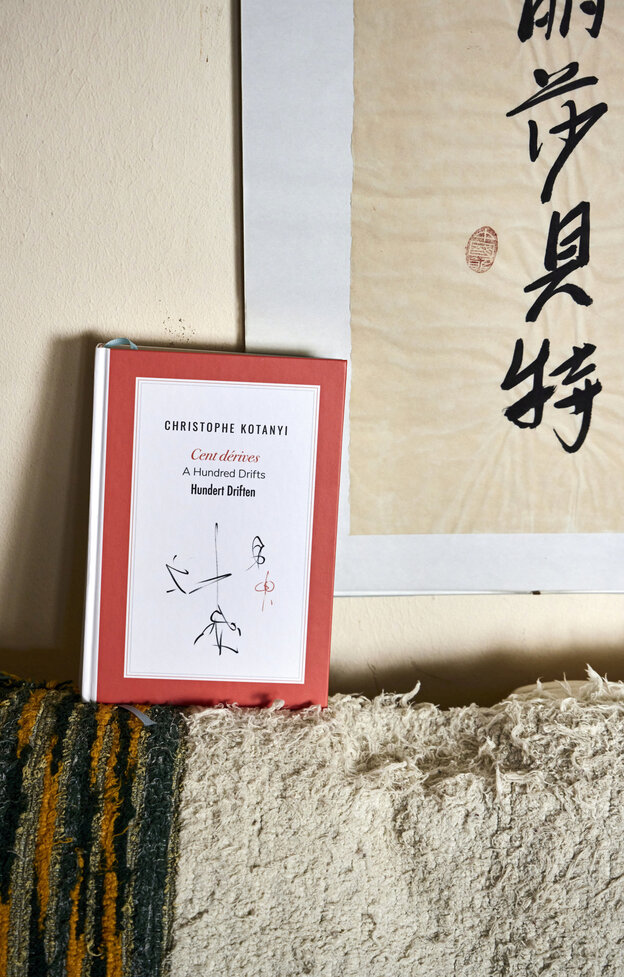 CHRISTOPHE KOTANYI
Cent dérives
A Hundred Drifts
Hundert Driften
丽
莎
贝
特